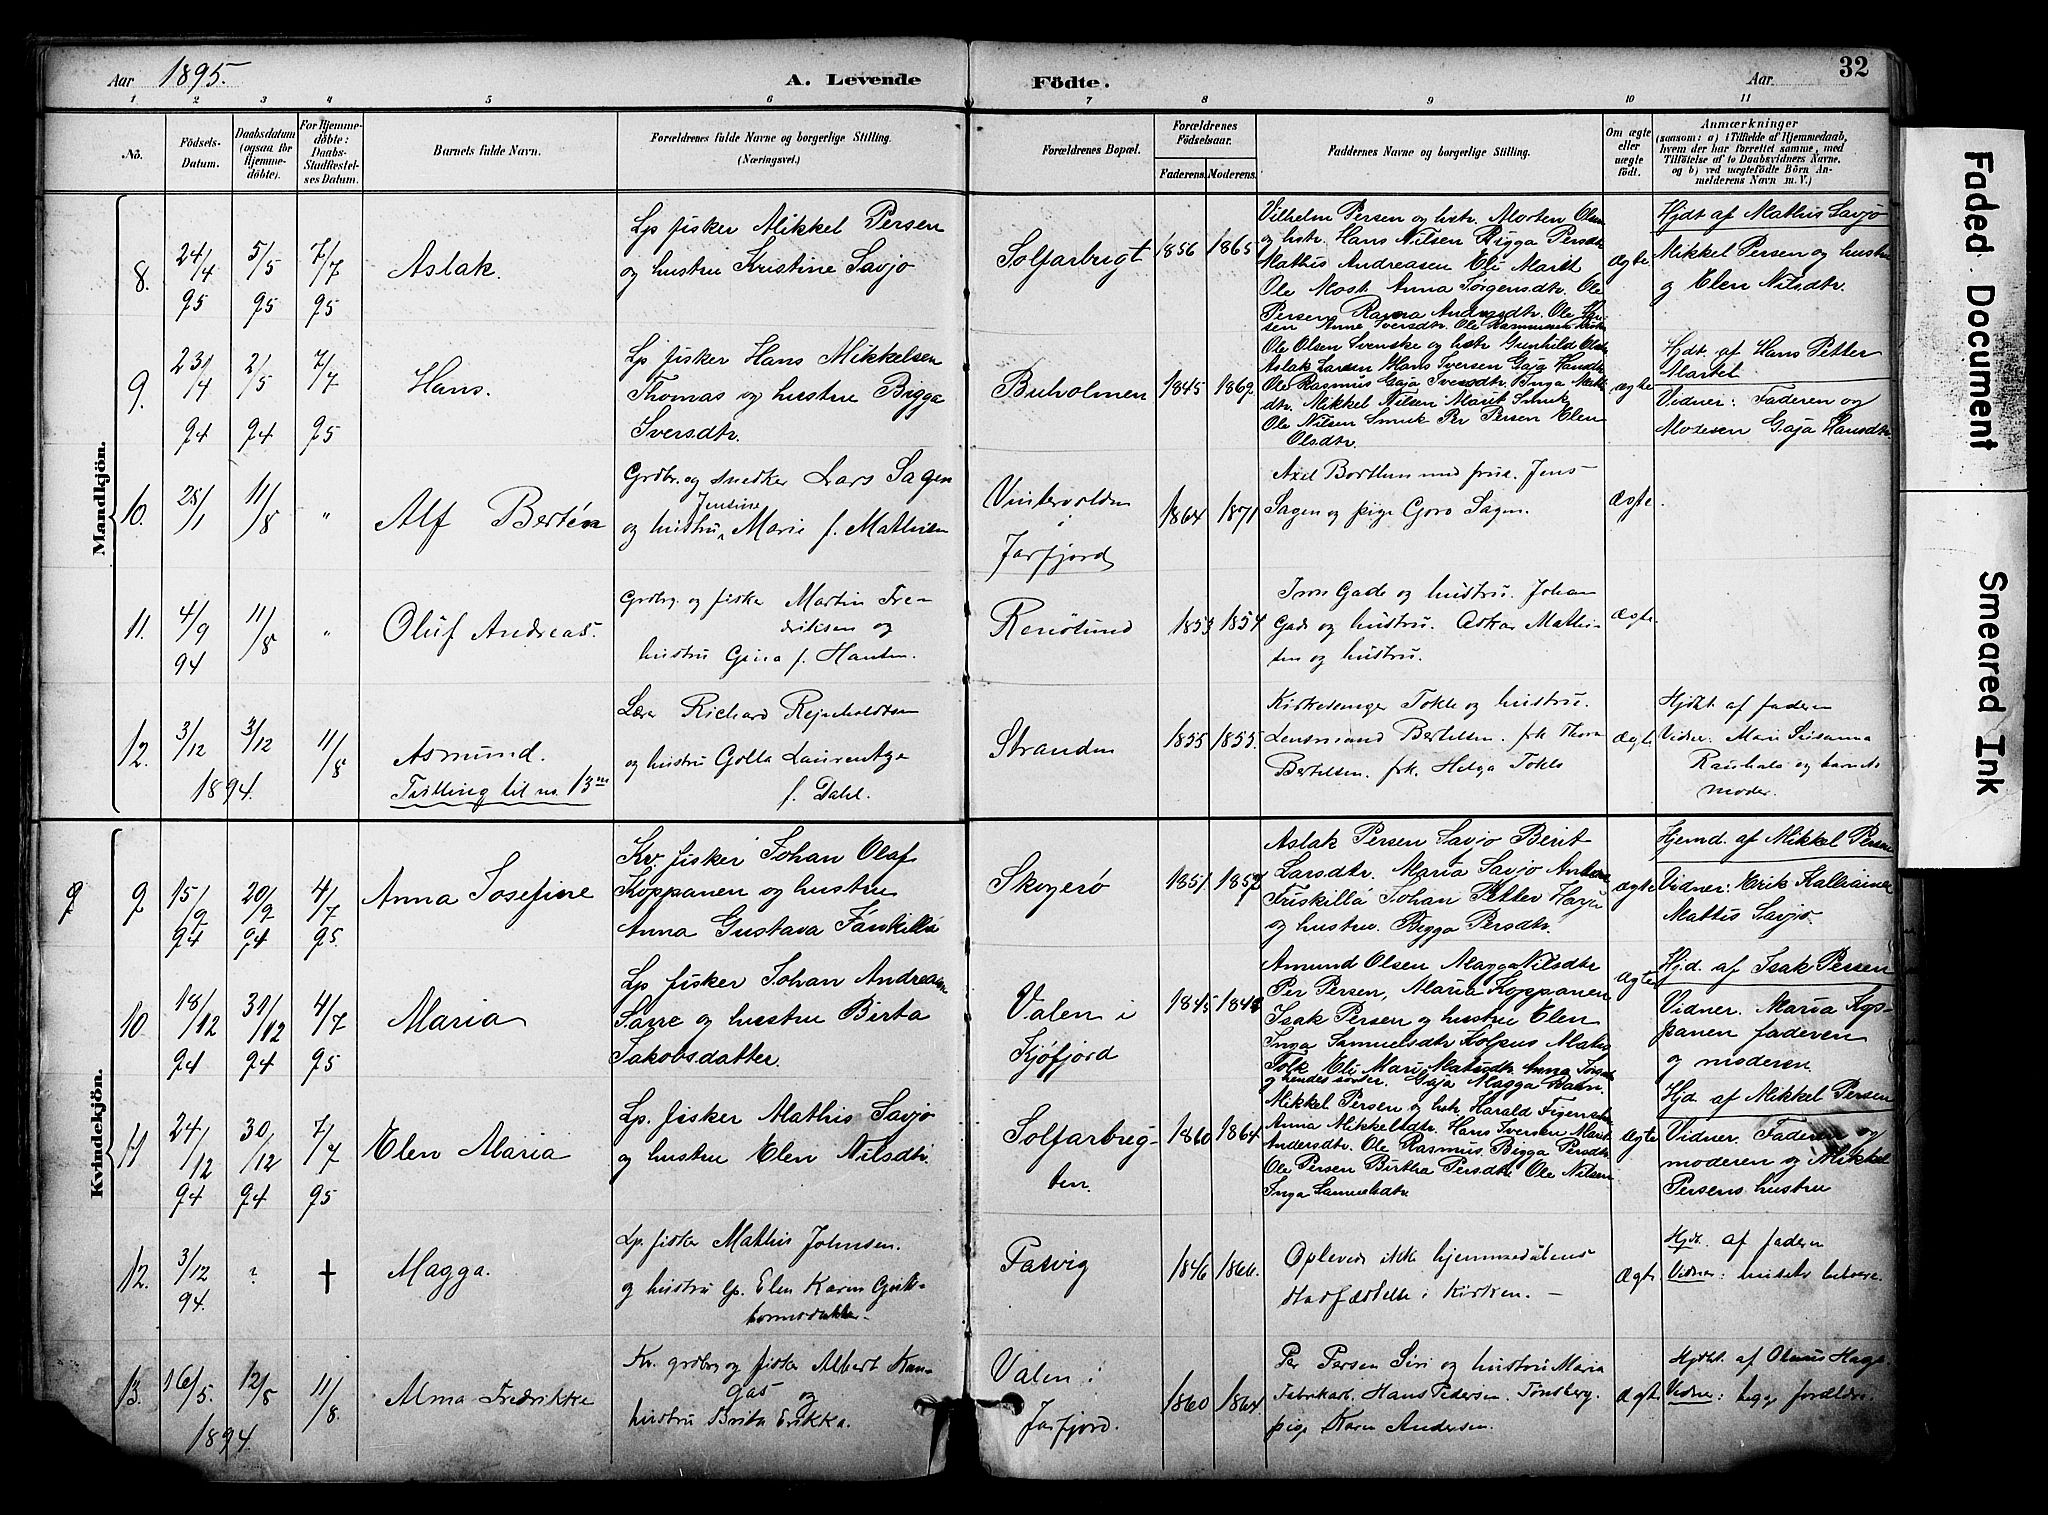 Aar 1895.
A. Levende
Födte.
Aar.
32
1 2 3 4 5 6 7 8 9 10 11
Nö.
Födsels-
Datum.
Daabsdatum
(ogsaa for
Hjemme-
döbte).
For Hjemme-
döbte:
Daabs-
Stadfæstel-
ses Datum.
Barnets fulde Navn.
Forældrenes fulde Navne og borgerlige Stilling.
(Næringsvei.)
Forældrenes Bopæl.
Forældrenes
Födselsaar.
Faderens. Moderens.
Faddernes Navne og borgerlige Stilling.
Om ægte
eller
uægte
født.
Anmærkninger
(saasom: a) i Tilfælde af Hjemmedaab,
hvem der har forrettet samme, med
Tilföielse af to Daabsvidners Navne,
og b) ved uægtefödte Börn An-
melderens Navn m. V.)
Mandkjön.
8.
24/4
95
5/5
95
7/7
95
Aslak.
Lp fisker Mikkel Persen
og hustru Kristine Savjo
Solfarbugt
1856 1865
Vilhelm Persen og hstr. Morten Olsen
og hstr. Hans Nilsen Bigga Persdtr
Mathis Andreasen Eli Marit
Ole Most Anna Jørgensdtr. Ole
Persen Ravna Andersdtr. Ole
ægte.
Hjdt af Mathis Savjo
Mikkel Persen og hustru
og Elen Nilsdtr.
9.
23/4
94
2/5
94
7/7
95
Hans.
Lp fisker Hans Mikkelsen
Thomas og hustru Bigga
Iversdtr.
Buholmen
1845 1862
Ole Olsen Svenske og hstr Gunhild Olsdtr
Aslak Larsen Hans Iversen Gaja Hansdtr
Ole Rasmus Gaja Iversdtr. Inga
dtr. Mikkel Nilsen Marit Smuk
Ole Nilsen Smuk Per Persen Elen
Olsdtr.
ægte
Hjdt. af Hans Petter
Martet
Vidner: Faderen og
Gaja Hansdtr
10.
25/1
11/8
"
Alf Bertén
Grdbr. og snedker Lars Sagen
og hustru Jentine Marie f. Mathisen
Vintervolden
i
Jarfjord
1864 1871
Axel Borthen med frue. Jens
Sagen og pige Goro Sagen.
Ægte.
11.
4/9
94
11/8
"
Oluf Andreas.
Grdbr. og fisker Martin Fre-
driksen og
hustru Gina f. Hansen.
Renösund
1853 1854
Gade og hustru. Johan
Gade og hustru. Oskar Mathi-
sen og hustru.
ægte.
12.
3/12
1894.
3/12
11/8
Asmund.
Tvilling til no. 13
Lærer Richard Rejnholdtsen
og hustru Golla Laurentze
f. Dahl.
Stranden
1855 1855.
Kirkesanger Tokle og hustru.
Lensmand Bertelsen. frk Thora
Bertelsen. frk. Helga Tokle
ægte
Hjdt. af faderen
Vidner: Mari Susanna
og barnets
moder.
Kvindekjön.
9
9
15/9
94
20/9
94
4/7
95.
Anna Josefine
Kv. fisker Johan Olaf
Koppanen og hustru
Anna Gustava
Skogerø
1851 1857
Aslak Persen Savjo Berit
Larsdtr. Maria Savjo
Friskillä Johan Petter
og hustru. Bigga Persdtr.
ægte
Hjemd. af Mikkel Persen
Vidner: Erik Kalliainen
Mattis Savjo.
10.
18/12
94
31/12
94
4/7
95
Maria
Lp fisker Johan Andreasen
Sarre og hustru Birta
Jakobsdatter.
Valen i
Kjøfjord
1845
Amund Olsen Magga Nilsdtr
Per Persen, Maria Koppanen
Isak Persen og hustru Elen
Inga Samuelsdtr
og hendes søster. Gaja Magga
ægte
Hjd. af Isak Persen
Vidner. Maria Kop-
panen faderen
og moderen.
11
24/12
94
30/12
94
7/7
95
Elen Maria
Lp. fisker Mathis Savjo
og hustru Elen Nilsdtr.
Solfarbug-
ten.
1860 1864
Mikkel Persen og hstr Harald
Anna Mikkelsdtr. Hans Iversen Marit
Andersdtr. Ole Rasmus Bigga Persdtr
Ole Persen Birtha Persdtr. Ole Nilsen
Inga Samuelsdtr
ægte
Hjd. af Mikkel Persen
Vidner. Faderen og
moderen og Mikkel
Persens hustru
12.
3/12
94.
?
†
Magga.
Lp. fisker Mathis Johnsen.
og hustru Lp. Elen Karin
Pasvig
1846 1866.
Oplevede ikke hjemmedaabens
stadfæstelse i kirken. –
Ægte
Hjdt. af faderen
Vidner:
13.
16/5
1894.
12/8
11/8.
Alma Fredrikke
Kv. grdbr. og fisker Albert Kan-
gas og
hustru Brita Erikka.
Valen i
Jarfjord.
1860 1864
Per Persen Siri og hustru Maria
Fabrikarb. Hans Pedersen. Tønsberg.
pige Karen Andersen.
Ægte
Hjdt. af
Vidner: begge forældre.
Faded Document
Smeared Ink